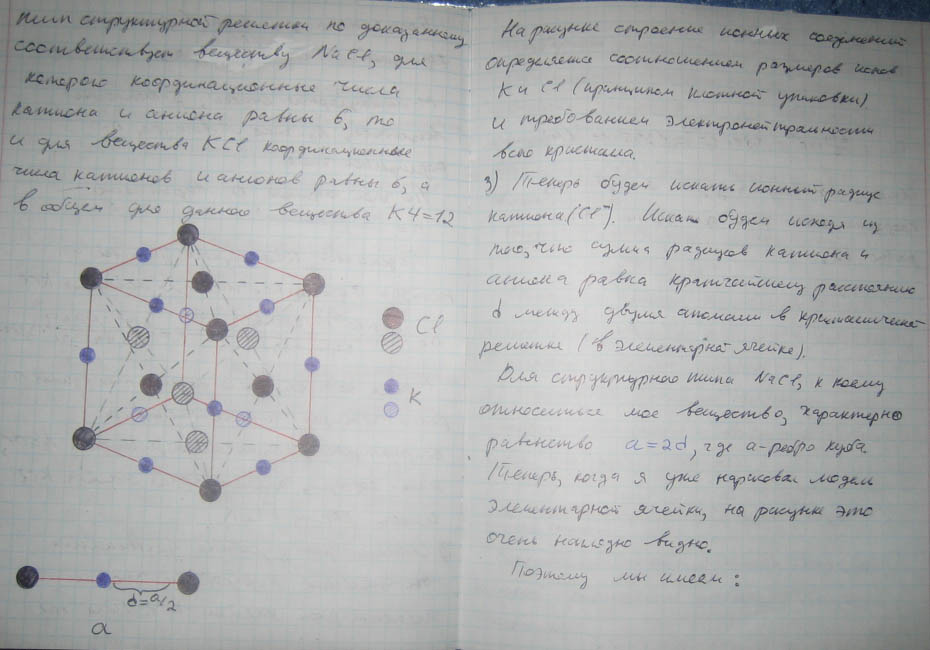 тип структурной решетки по доказанному
соответствует веществу NaCl, для
которого координационные числа
катиона и аниона равны 6, то
и для вещества KCl координационные
числа катионов и анионов равны 6, а
в общем для данного вещества КЧ=12
Cl
K
d=a/2
a
На рисунке строение ионных соединений
определяется соотношением размеров ионов
K и Cl (принципом плотной упаковки)
и требованием электронейтральности
всго кристала.
3) Теперь будем искать ионный радиус
катиона (Cl⁻). Искать будем исходя из
того, что сумма радиусов катиона и
аниона равна кратчайшему расстоянию
d между двумя атомами в кристаллической
решетке (в элементарной ячейке).
Для структурного типа NaCl, к коему
относиться мое вещество, характерно
равенство a=2d, где a-ребро куба.
Теперь, когда я уже нарисовал модель
элементарной ячейки, на рисунке это
очень наглядно видно.
Поэтому мы имеем: